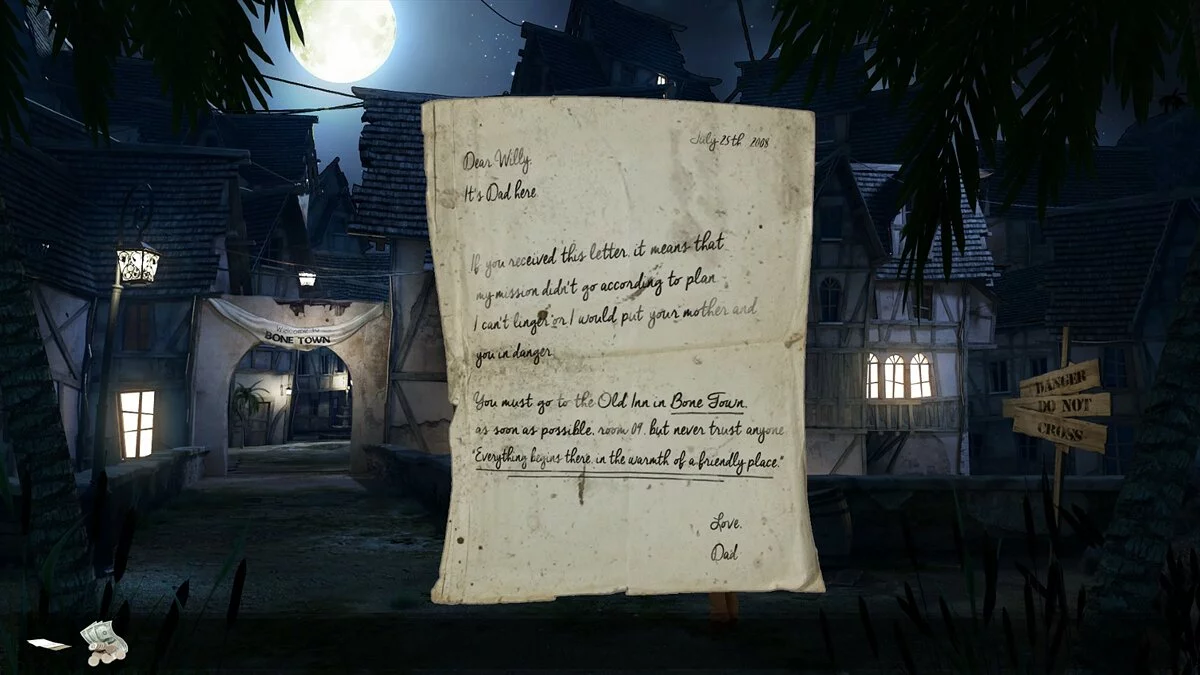 July 25th 2008
Dear Willy,
It's Dad here
If you received this letter, it means that
my mission didn't go according to plan
I can't linger or I would put your mother and
you in danger
You must go to the Old Inn in Bone Town,
as soon as possible, room 09, but never trust anyone
"Everything begins there, in the warmth of a friendly place."
Love,
Dad
Welcome to
BONE TOWN
DANGER
DO NOT
CROSS